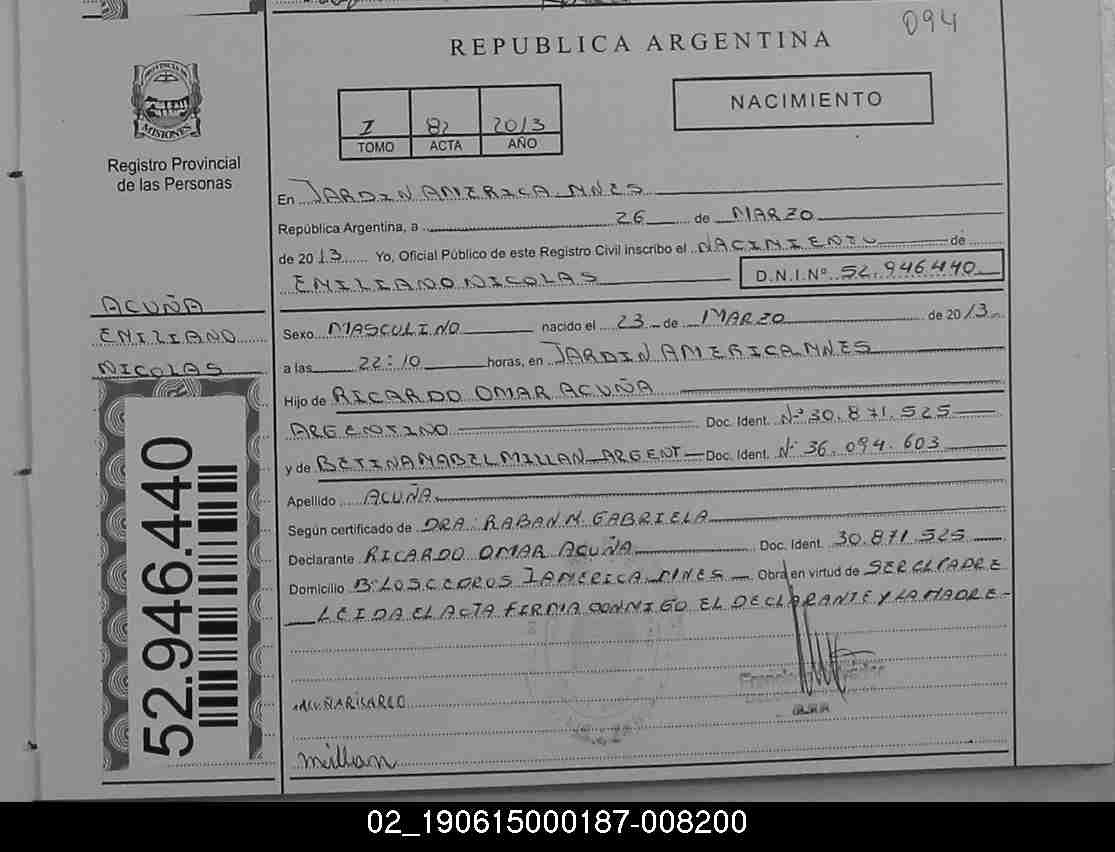 094
REPUBLICA ARGENTINA
NACIMIENTO
I 82 2013
TOMO ACTA AÑO
PROVINCIA DE
MISIONES
Registro Provincial
de las Personas
En JARDIN AMERICA MNES
República Argentina, a 26 de MARZO
de 2013 Yo, Oficial Público de este Registro Civil inscribo el NACIMIENTO de
EMILIANO NICOLAS D.N.I.Nº 52.946.440
ACUÑA
EMILIANO
NICOLAS
Sexo MASCULINO nacido el 23 de MARZO de 2013
a las 22:10 horas, en JARDIN AMERICA MNES
Hijo de RICARDO OMAR ACUÑA
ARGENTINO Doc. Ident. Nº 30.871.525
y de BETINA MABEL MILLAN ARGENT Doc. Ident. Nº 36.094.603
Apellido ACUÑA
Según certificado de DRA: RABAN M. GABRIELA
Declarante RICARDO OMAR ACUÑA Doc. Ident. 30.871.525
Domicilio Bº LOS CEDROS J AMERICA MNES Obra en virtud de SER EL PADRE
LEIDA EL ACTA FIRMA CONMIGO EL DECLARANTE Y LA MADRE-
52.946.440
ACUÑA RICARDO
millan
02_190615000187-008200